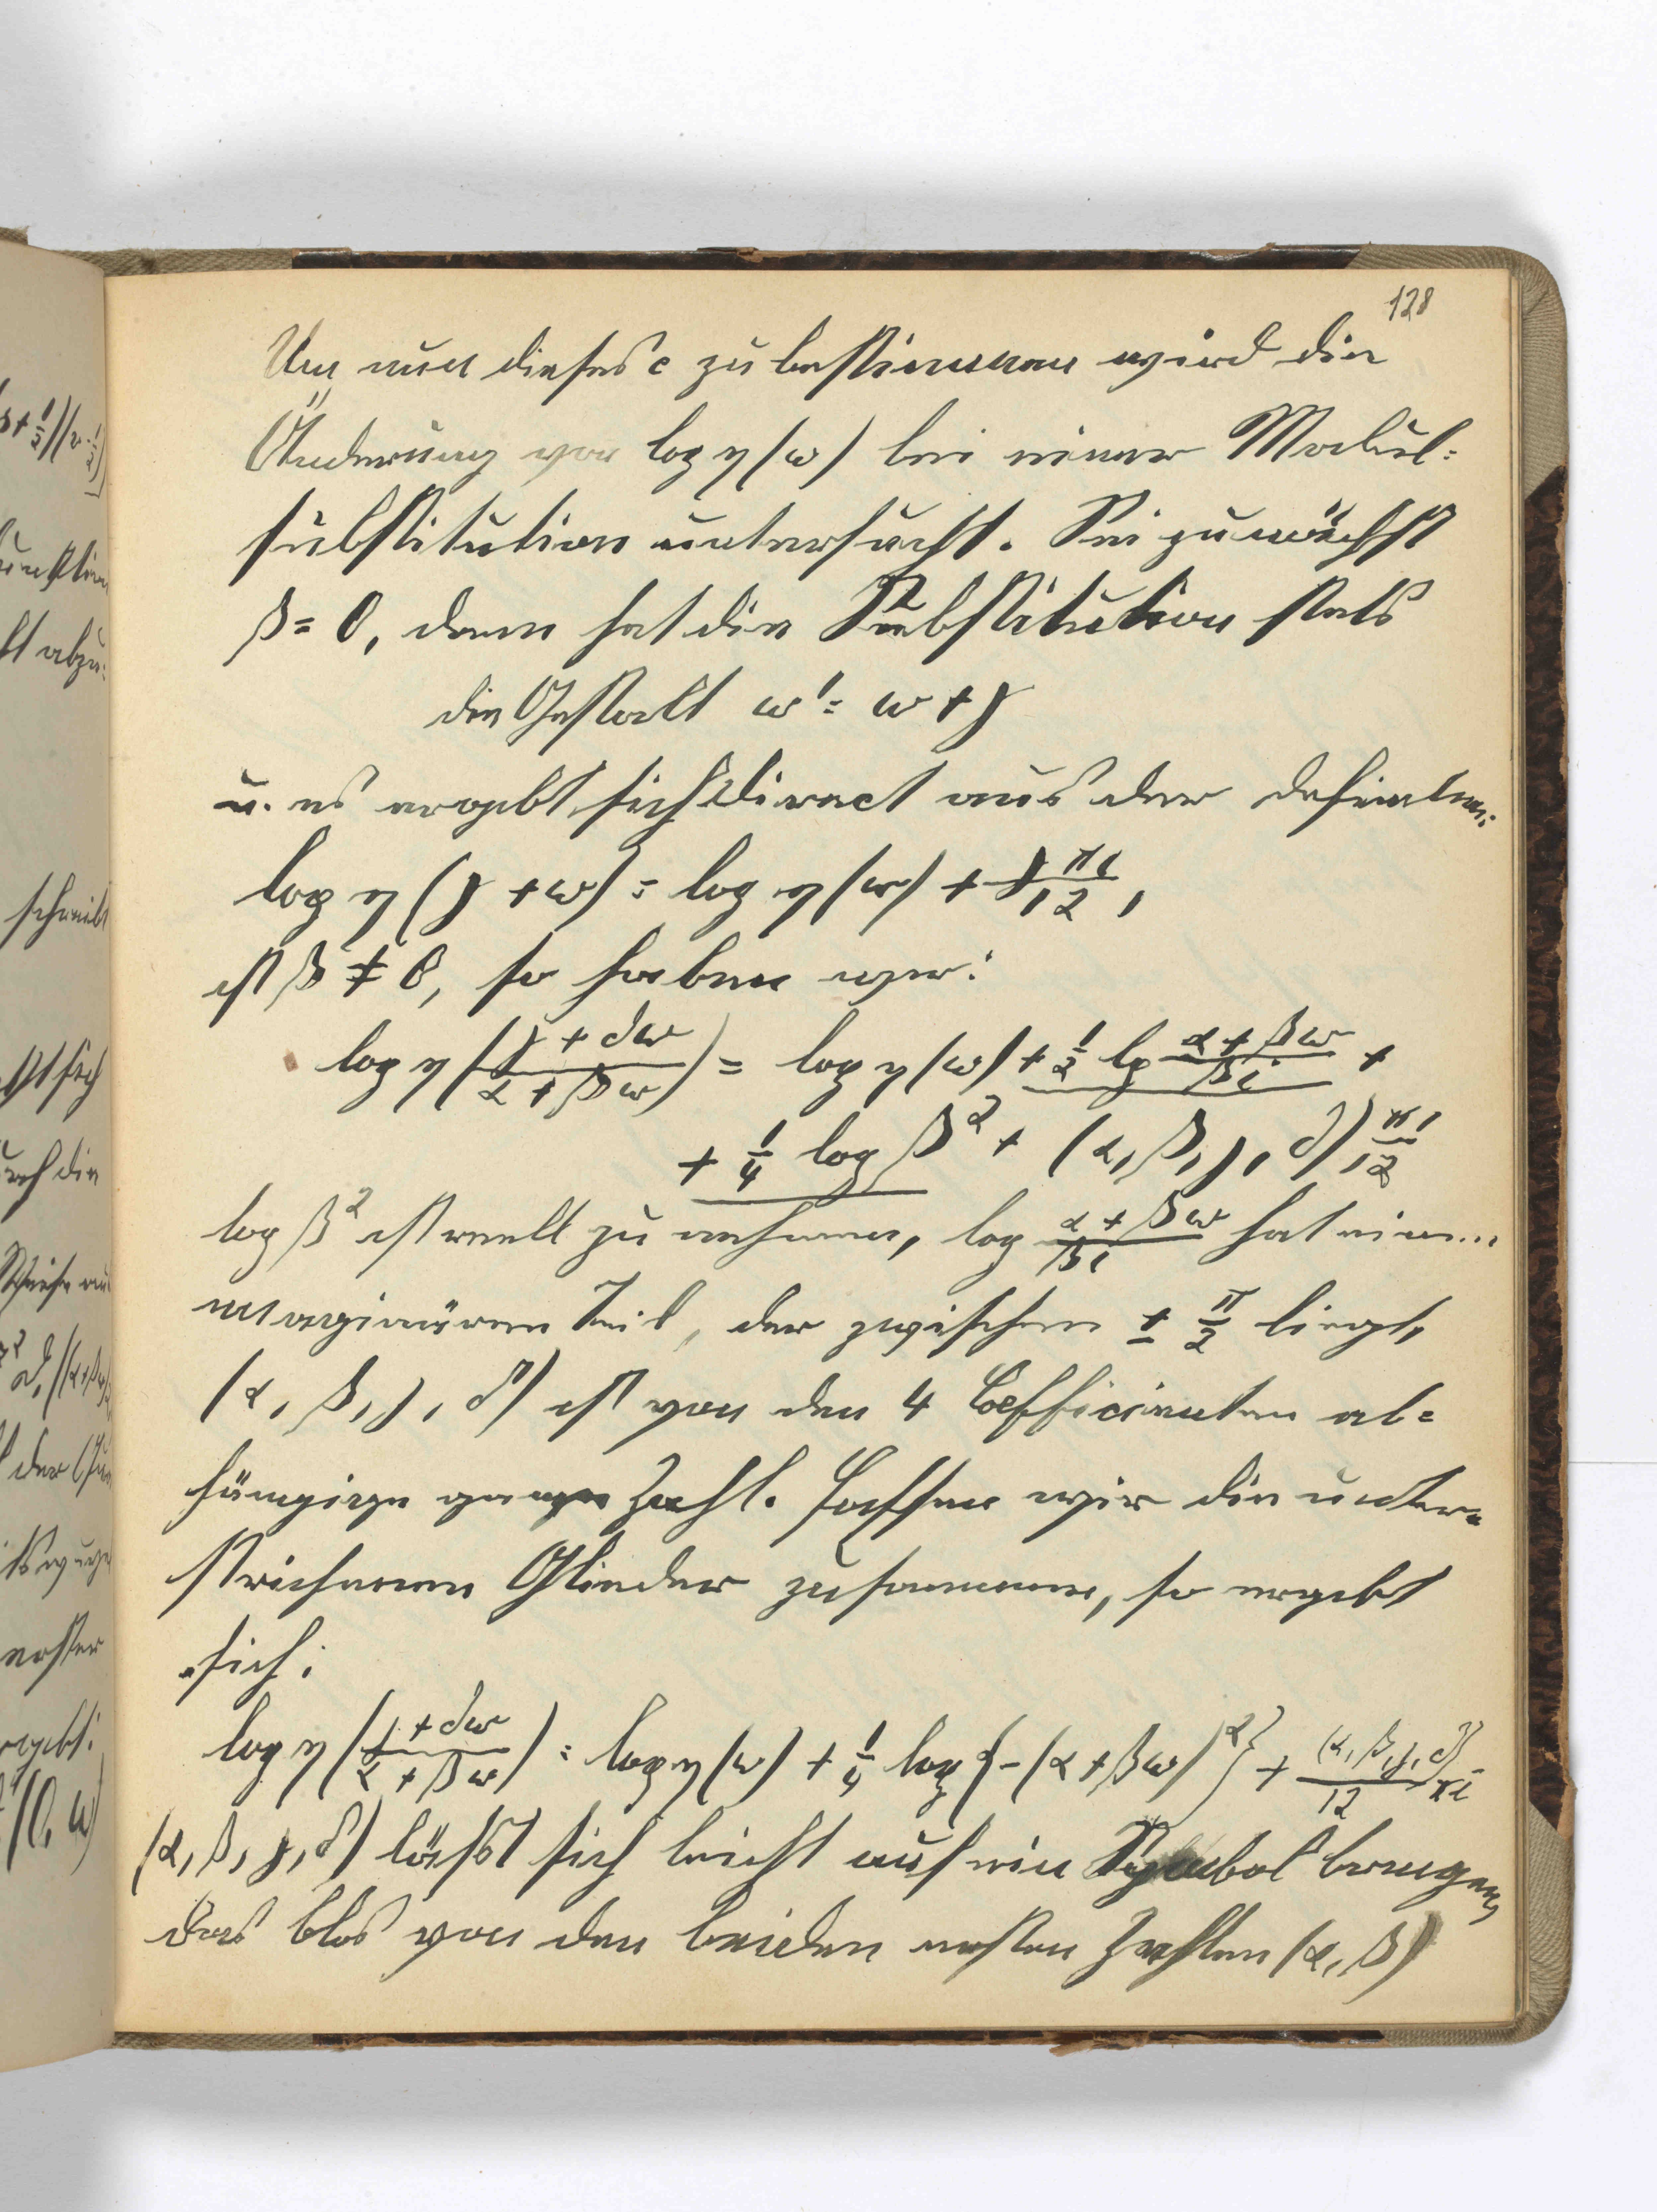 128
Um nun dieses c zu bestimmen wird die
Änderung von log η(ω) bei einer Modul=
substitution untersucht. Sei zunächst
β = 0, dann hat die Substitution stets
die Gestalt ω' = ω + γ
u. es ergebt sich direct aus der Definition:
log η(γ + ω) = log η(ω) + γ πi/12,
ist β ≠ 0, so haben wir:
log η((γ + δω)/(α + βω)) = log η(ω) + 1/2 lg (α + βω)/(βi) +
+ 1/4 log β² + (α, β, γ, δ) πi/12
log β² ist reell zu nehmen, log (α + βω)/(βi) hat einen
imaginären Teil, der zwischen ± π/2 liegt,
(α, β, γ, δ) ist von den 4 Coefficienten ab=
hängige ganze Zahl. Fassen wir die unter=
strichenen Glieder zusammen, so ergebt
sich:
log η((γ + δω)/(α + βω)) = log η(ω) + 1/4 log {-(α + βω)²} + (α, β, γ, δ)/12 πi
(α, β, γ, δ) lässt sich leicht auf ein Symbol bringen,
das blos von den beiden ersten Zahlen (α, β)
s + 1/2)
ft abzu=
schreibt
sich
durch die
Weise
der
erster
ergebt:
(0, ω)